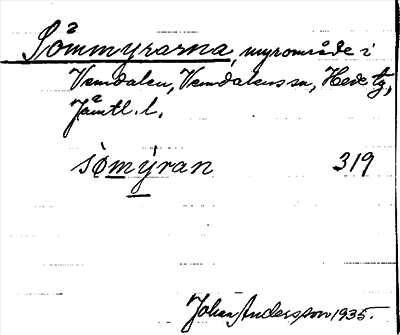 Sömmyrarna, myrområde i
Vemdalen, Vemdalens sn, Hede tg,
Jämtl. l.
sømýran 319
Johan Andersson 1935.